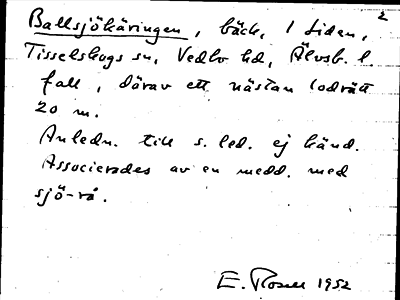 Ballsjökäringen, bäck, 1 Liden, 2
Tisselskogs sn, Vedbo hd, Älvsb. l.
fall, därav ett nästan lodrätt
20 m.
Anledn. till s. led. ej känd.
Associerades av en medd. med
sjö-rå.
E. Rosell 1952